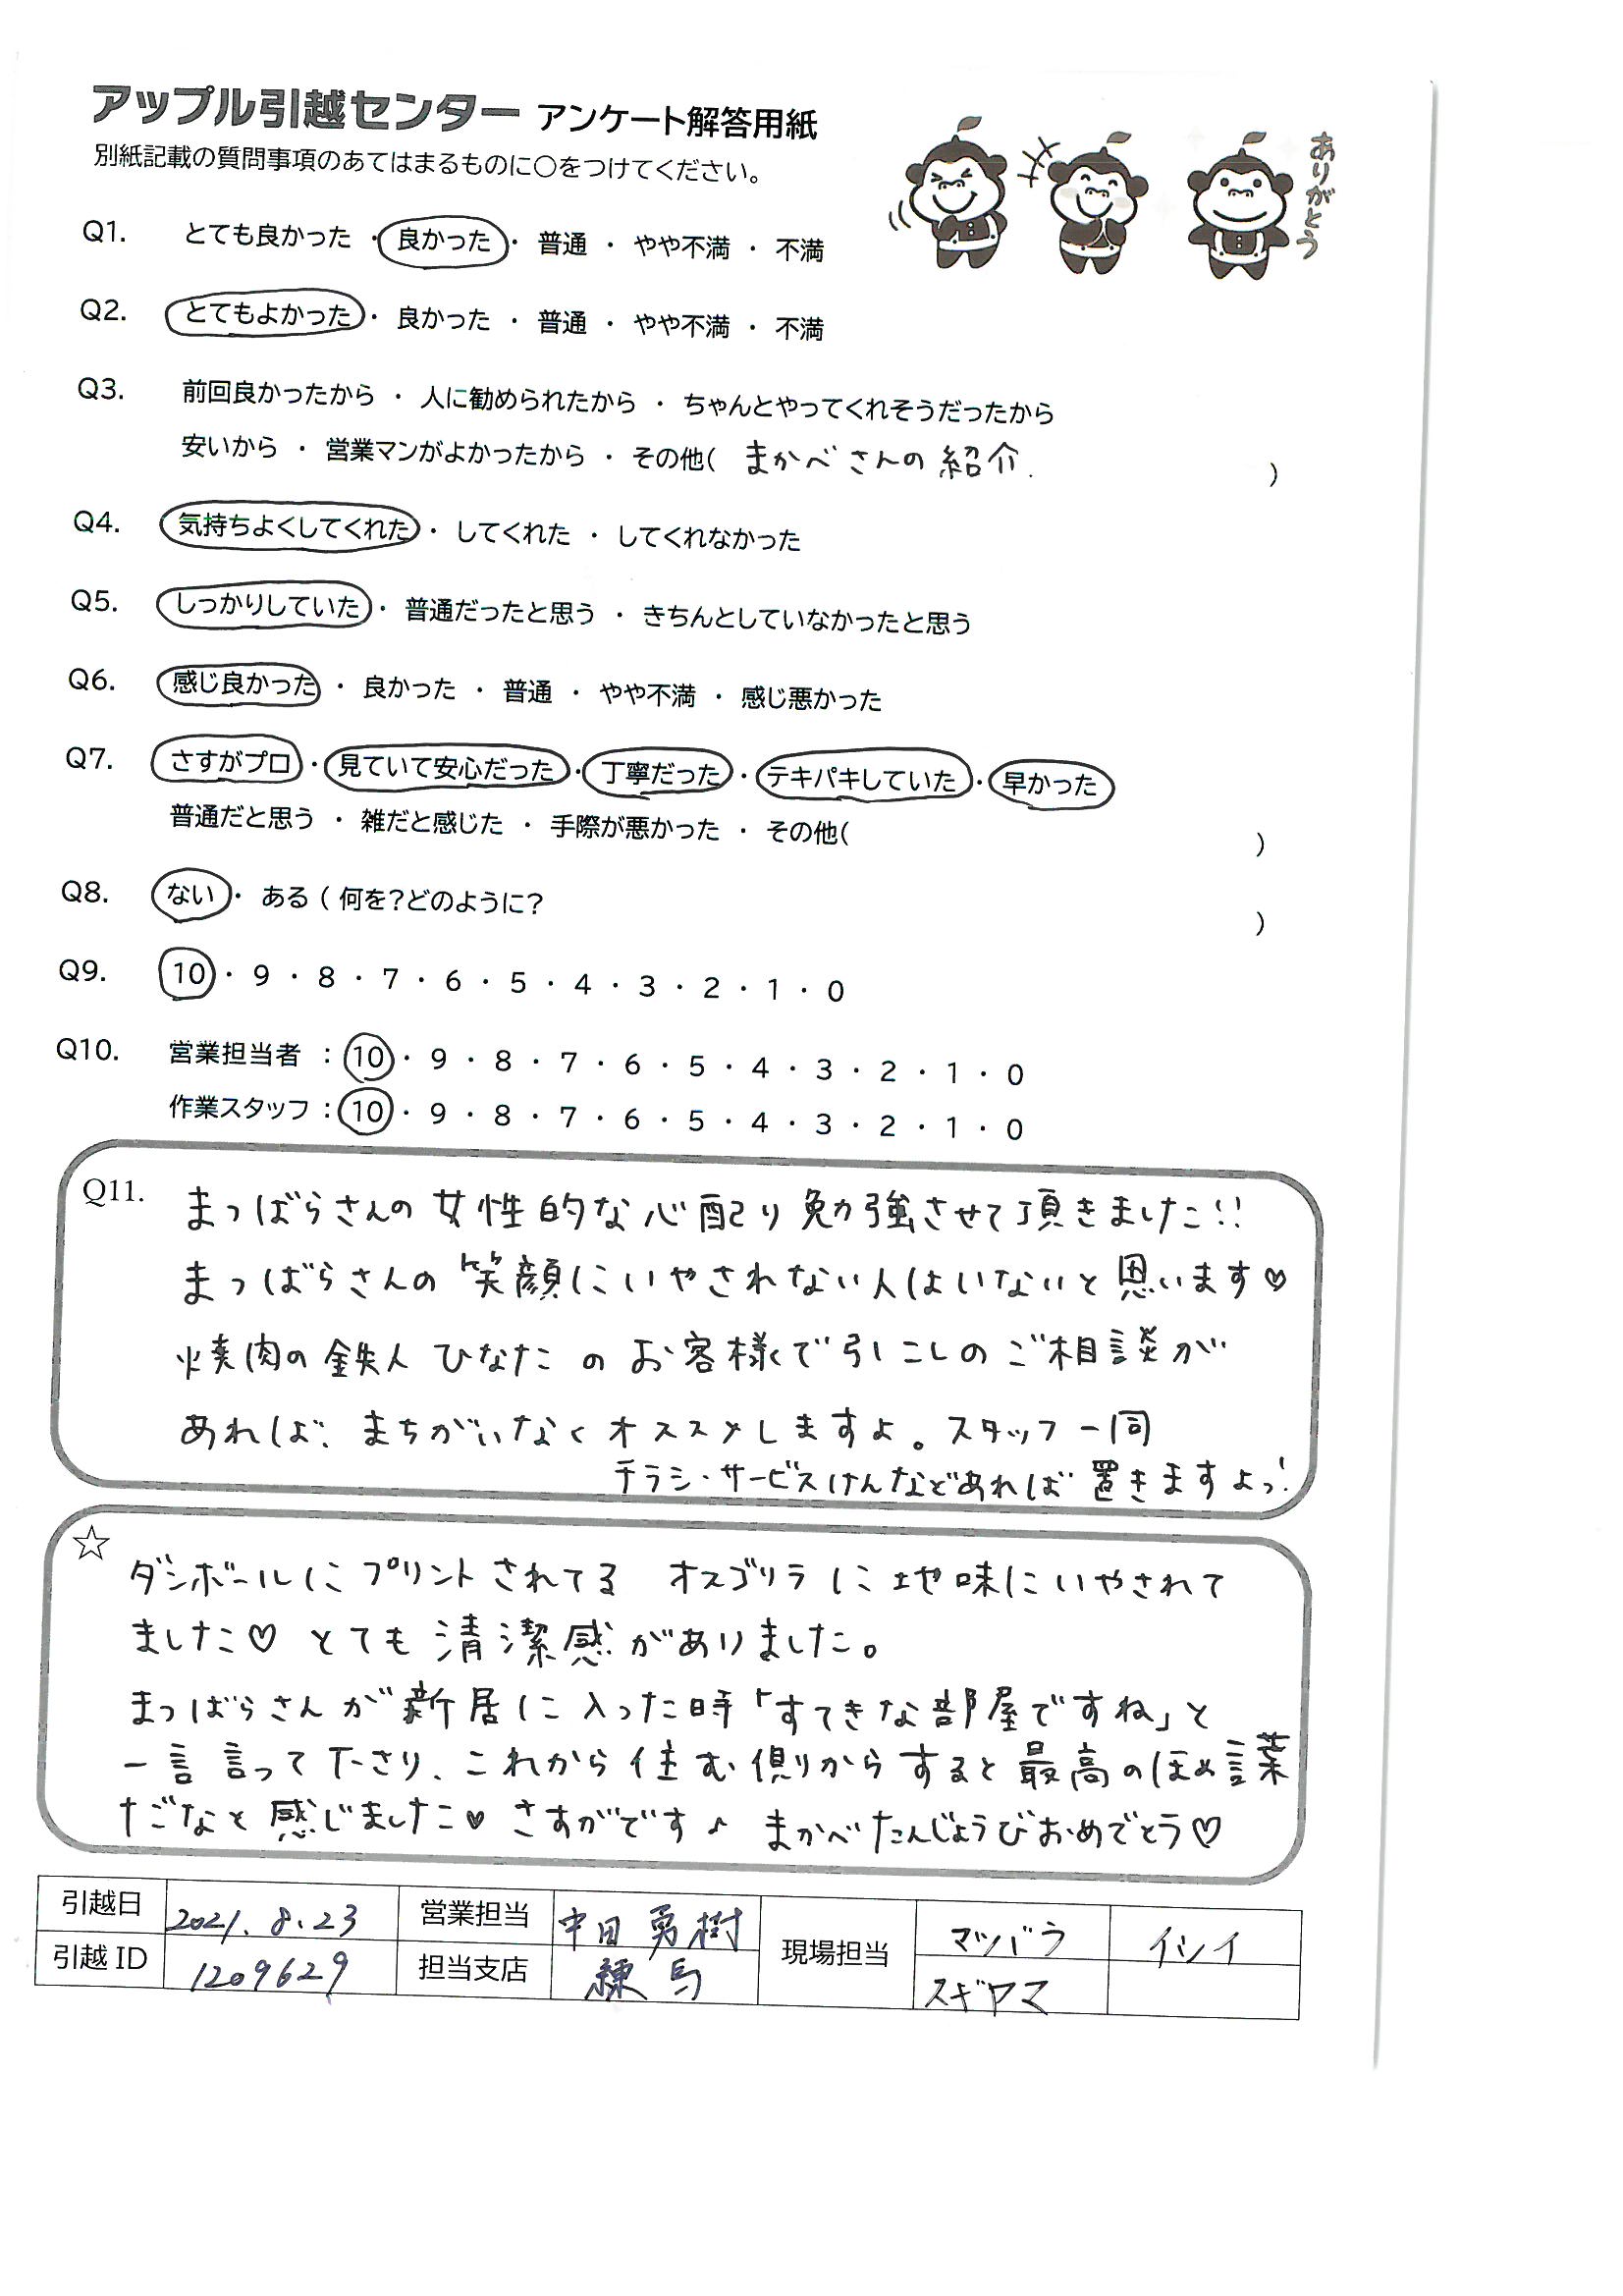 アップル引越センター アンケート解答用紙
別紙記載の質問事項のあてはまるものに○をつけてください。
ありがとう
Q1. とても良かった ・ 良かった ・ 普通 ・ やや不満 ・ 不満
Q2. とてもよかった ・ 良かった ・ 普通 ・ やや不満 ・ 不満
Q3. 前回良かったから ・ 人に勧められたから ・ ちゃんとやってくれそうだったから
安いから ・ 営業マンがよかったから ・ その他( まかべさんの紹介. )
Q4. 気持ちよくしてくれた ・ してくれた ・ してくれなかった
Q5. しっかりしていた ・ 普通だったと思う ・ きちんとしていなかったと思う
Q6. 感じ良かった ・ 良かった ・ 普通 ・ やや不満 ・ 感じ悪かった
Q7. さすがプロ ・ 見ていて安心だった ・ 丁寧だった ・ テキパキしていた ・ 早かった
普通だと思う ・ 雑だと感じた ・ 手際が悪かった ・ その他( )
Q8. ない ・ ある ( 何を?どのように? )
Q9. 10 ・ 9 ・ 8 ・ 7 ・ 6 ・ 5 ・ 4 ・ 3 ・ 2 ・ 1 ・ 0
Q10. 営業担当者 : 10 ・ 9 ・ 8 ・ 7 ・ 6 ・ 5 ・ 4 ・ 3 ・ 2 ・ 1 ・ 0
作業スタッフ : 10 ・ 9 ・ 8 ・ 7 ・ 6 ・ 5 ・ 4 ・ 3 ・ 2 ・ 1 ・ 0
Q11. まつばらさんの女性的な心配り勉強させて頂きました!!
まつばらさんの笑顔にいやされない人はいないと思います♡
焼肉の鉄人 ひなた の お客様で引こしのご相談が
あれば、まちがいなくオススメしますよ。スタッフ一同
チラシ・サービスけんなどあれば置きますよっ!
☆
ダンボールにプリントされてる オスゴリラに地味にいやされて
ました♡ とても清潔感がありました。
まつばらさんが新居に入った時「すてきな部屋ですね」と
一言言って下さり、これから住む側りからすると最高のほめ言葉
だなと感じました♡ さすがです♪ まかべたんじょうびおめでとう♡
引越日 2021.8.23 営業担当 中田勇樹 現場担当 マツバラ イシイ
引越ID 1209629 担当支店 練馬 スギヤマ